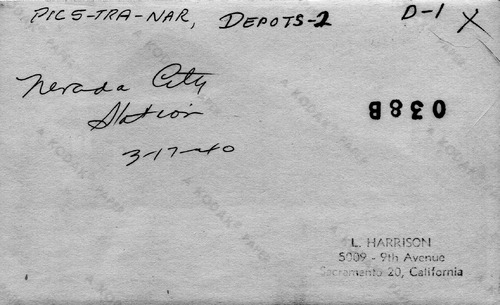 PICS-TRA-NAR, DEPOTS-2 D-1 X
Nevada City
Station
3-17-40
038B
L. HARRISON
5009 - 9th Avenue
Sacramento 20, California
A KODAK PAPER